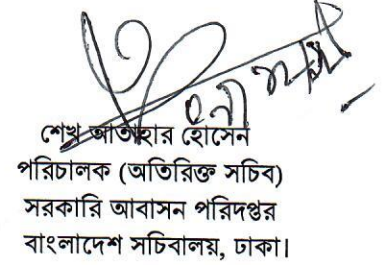 শেখ আতাহার হোসেন
পরিচালক (অতিরিক্ত সচিব)
সরকারি আবাসন পরিদপ্তর
বাংলাদেশ সচিবালয়, ঢাকা।